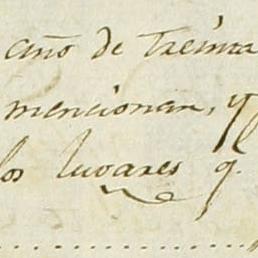 año de treinta
mencionan, y
los lugares q.